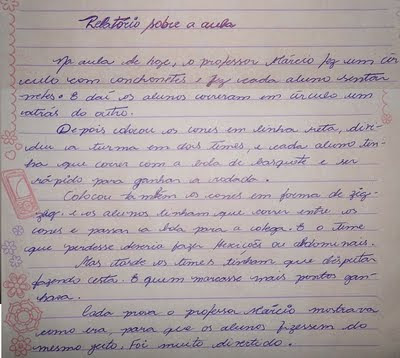 Relatório sobre a aula
Na aula de hoje, o professor Márcio fez um cír
culo com conchonetes e fez cada aluno sentar
neles. E daí os alunos correram em círculo um
atrás do outro.
Depois colocou os cones em linha reta, divi-
diu a turma em dois times, e cada aluno ti-
nha que correr com a bola de basquite e ser
rápido para ganhar a rodada.
Colocou também os cones em forma de zig-
zag. e os alunos tinham que correr entre os
cones e passar a bola para a colega. E o time
que perdesse deveria fazer flexções ou abdominais.
Mas tarde os times tinham que disputar
fazendo cesta. E quem marcasse mais pontos gan-
hava.
Cada prova o professor Márcio mostrava
como era, para que os alunos fizessem do
mesmo jeito. Foi muito divertido.